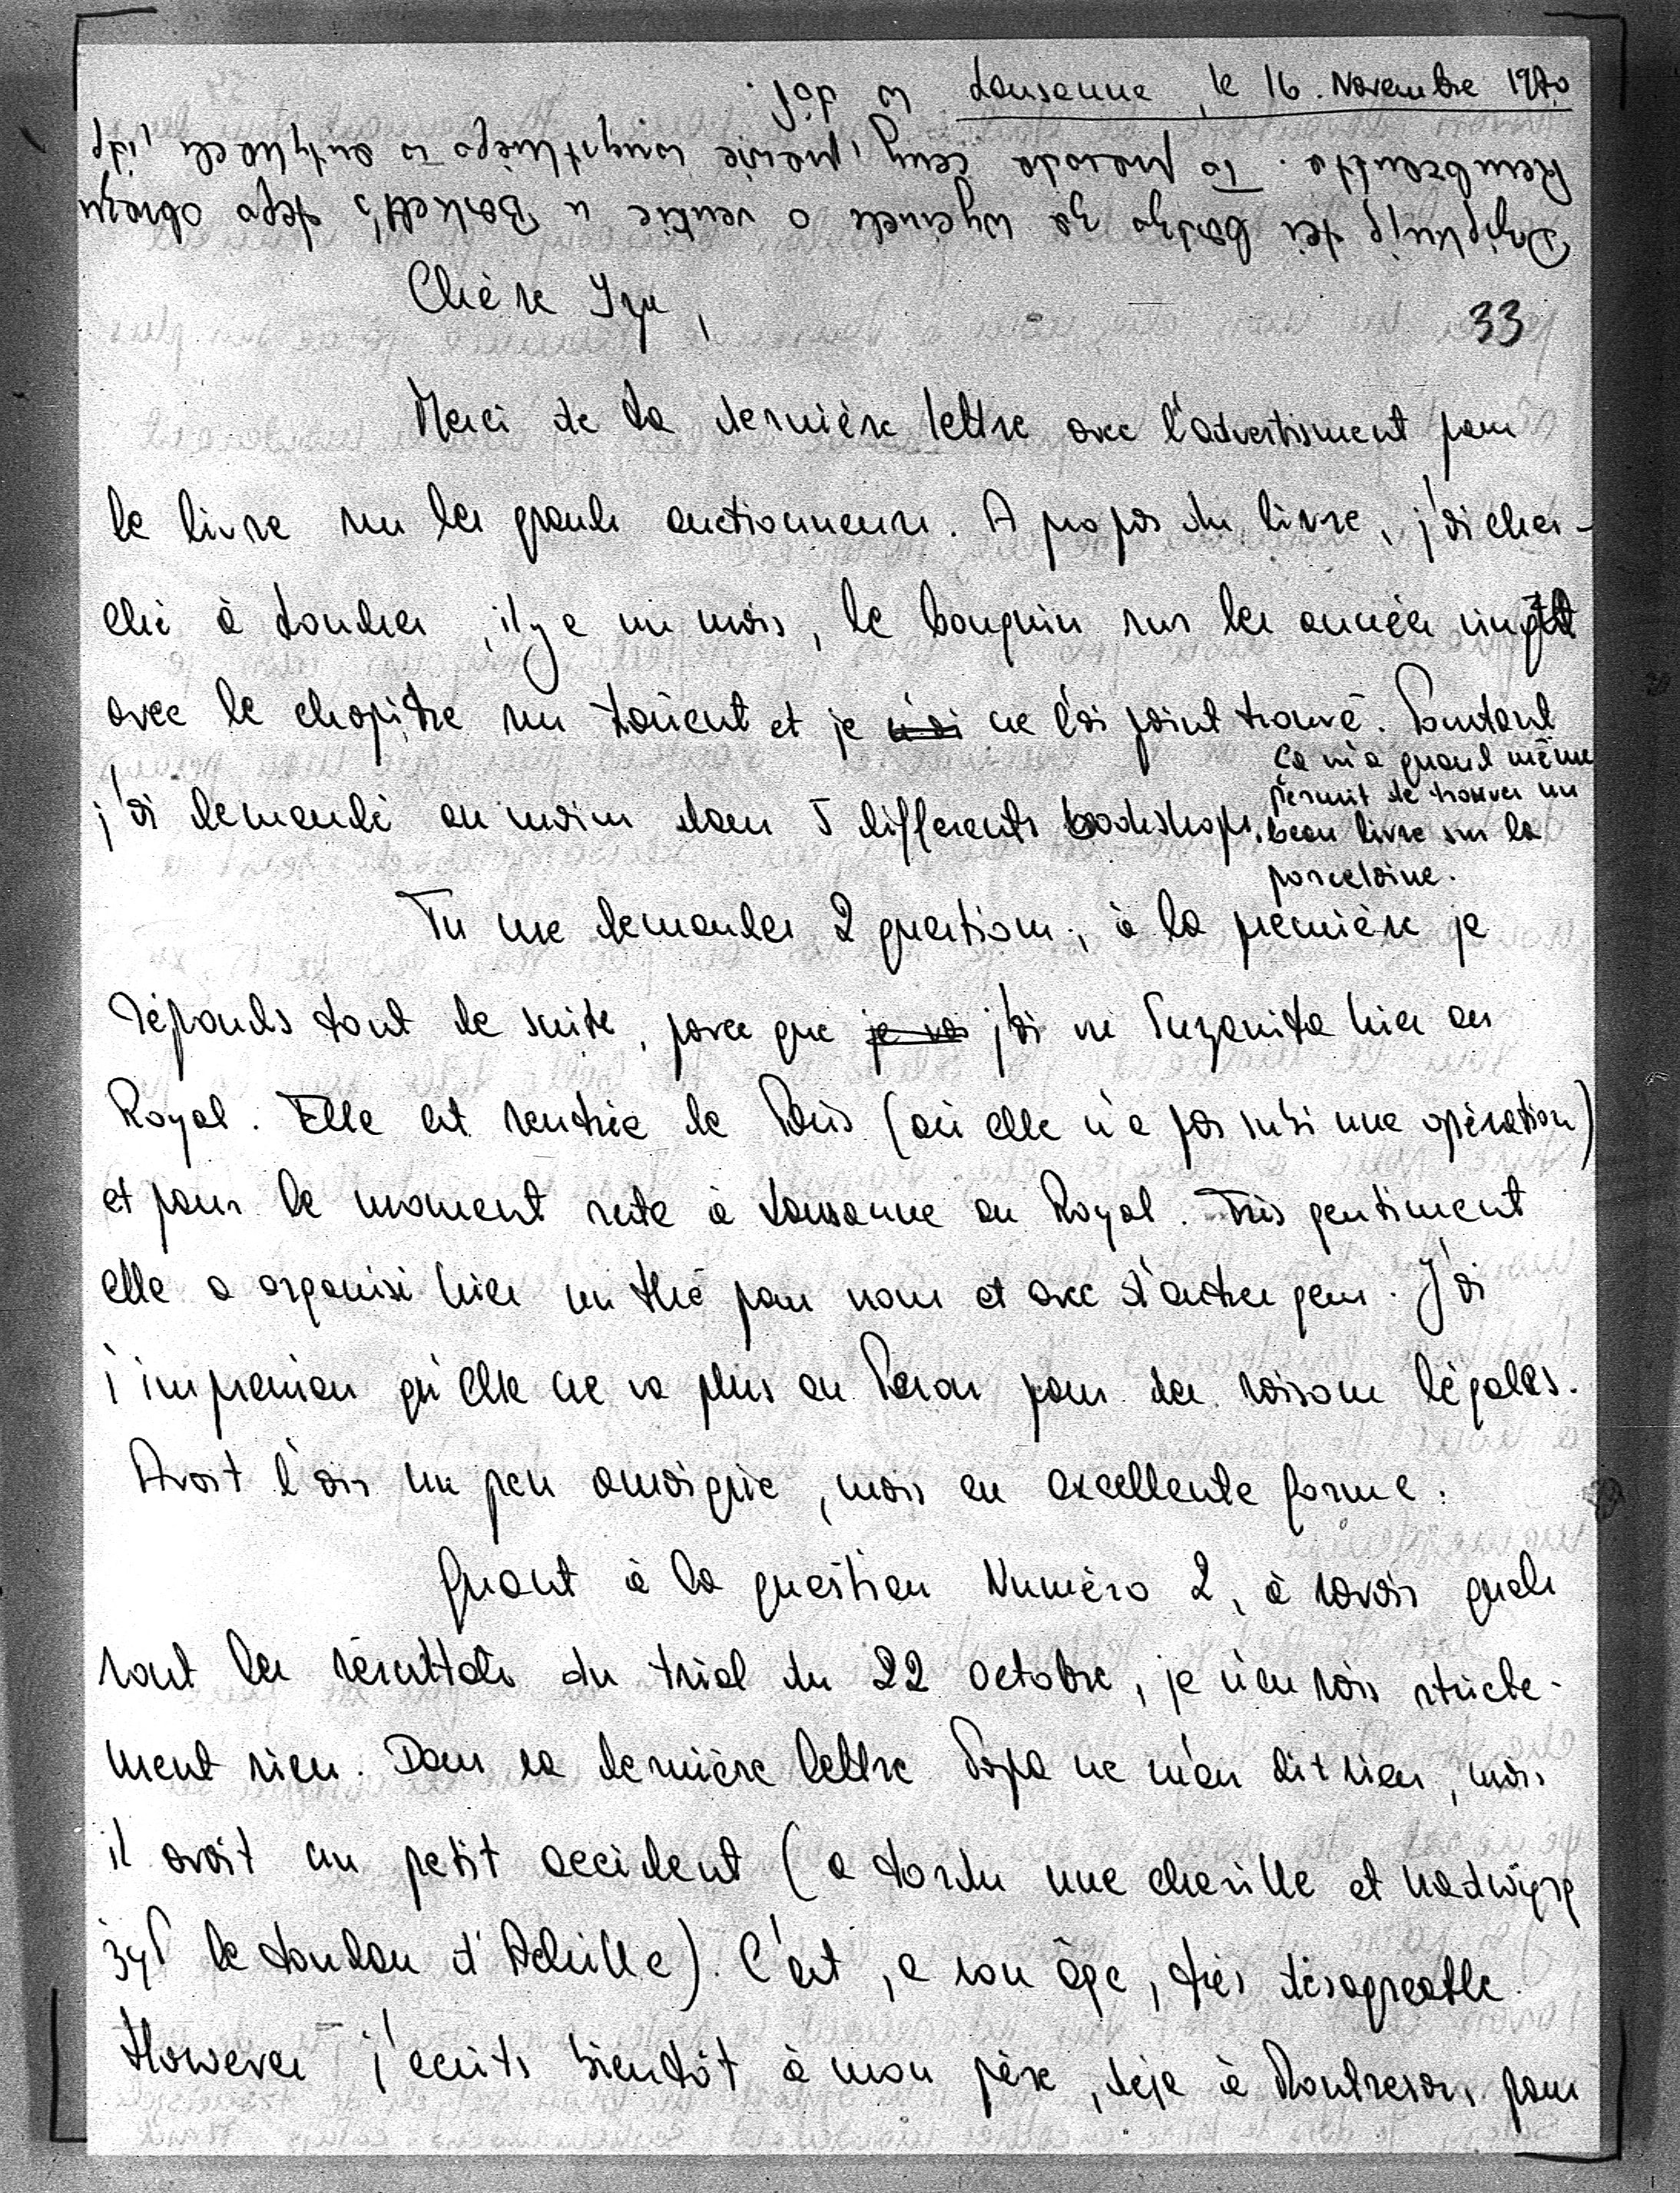 Lausanne, le 16. Novembre 1970
Dziękuję też bardzo za wycinek o vente u Parketta, tego obrazu
Rembrandta. To prawda ceny, prawie wszystkiego w antykach, idą
w górę.
Chère Izu,
33
Merci de ta dernière lettre avec l'advertisment pour
le livre sur les grands auctionneurs. A propos du livre, j'ai cher-
ché à Londres, il y a un mois, le bouquin sur les années vingt
avec le chapitre sur Laurent et je ne l'ai point trouvé. Pourtant
j'ai demandé au moins dans 5 differents bookshops.
Ca m'a quand même
permit de trouver un
beau livre sur la
porcelaine.
Tu me demandes 2 questions, à la première je
réponds tout de suite, parce que j'ai vu Suzanita hier au
Royal. Elle est rentrée de Paris (où elle n'a pas subi une opération)
et pour le moment reste à Lausanne au Royal. Très gentiment
elle a organisé hier un thé pour nous et avec d'autres gens. J'ai
l'impression qu'elle ne va plus au Pérou pour des raisons légales.
Avait l'air un peu amaigrie, mais en excellente forme.
Quant à la question Numéro 2, à savoir quels
sont les résultats du trial du 22 octobre, je n'en sais stricte-
ment rien. Dans sa dernière lettre Papa ne m'en dit rien, mais
il avait un petit accident (a tordu une cheville et nadwyrę
żył le tendon d'Achille). C'est, a son âge, très désagreable.
However j'écrits bientôt à mon père, déjà à Montresor, pour